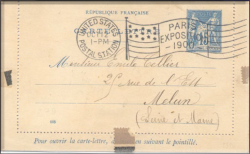 RÉPUBLIQUE FRANÇAISE
UNITED STATES
POSTAL STATION
1-PM
PARIS
EXPOSITION
1900
15
Monsieur Emile
25 rue de l'
Melun
(Seine et Marne)
Pour ouvrir la carte-lettre, suivant le pointillé.